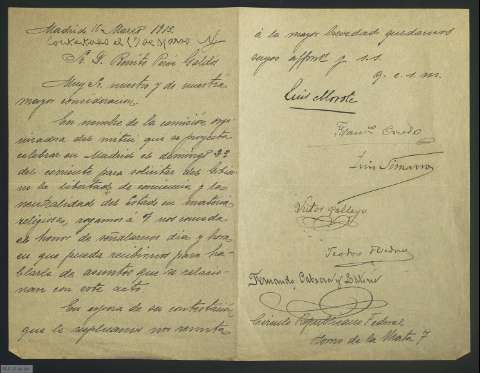 Madrid 16 Marzo 1913.
Contestado el 17 de Marzo
Sr. D. Benito Pérez Galdós
Muy Sr. nuestro y de nuestra
mayor consideración:
En nombre de la comisión orga-
nizadora del mitin que se proyecta
celebrar en Madrid el domingo 23
del corriente para solicitar del Gobier-
no la libertad de conciencia y la
neutralidad del Estado en materia
religiosa, rogamos á V. nos conceda
el honor de señalarnos día y hora
en que pueda recibirnos para ha-
blarle de asuntos que se relacio-
nan con este acto.
En espera de su contestación
que le suplicamos nos remita
á la mayor brevedad quedamos
suyos affmos. q. s. s.
q. e. s. m.
Luis Morote
Luis Simarro
Víctor Gallego
Teodoro
Fernando Cabrera y
Círculo Republicano Federal
Horno de la Mata 7